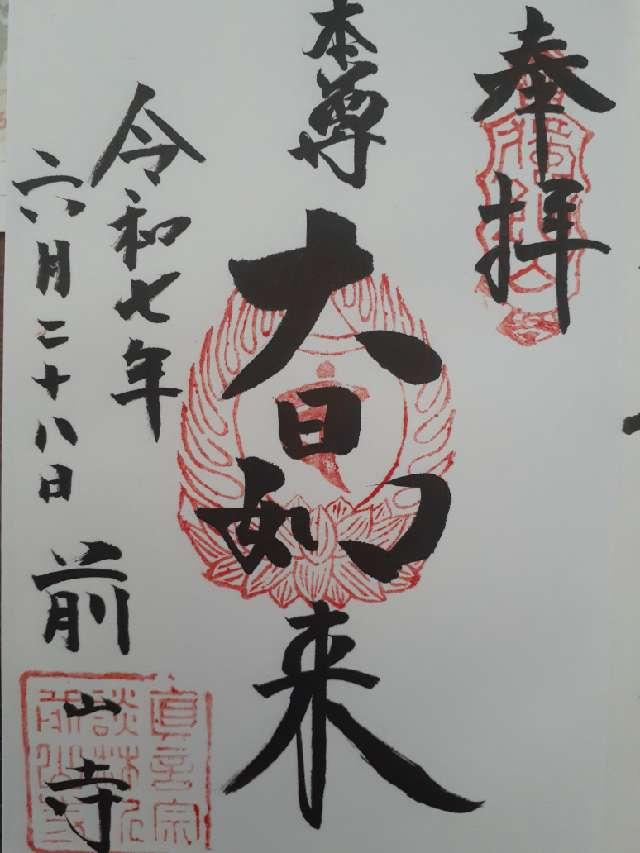 奉拝
本尊
大日如来
令和七年
六月二十八日
前山寺
真言宗
談林